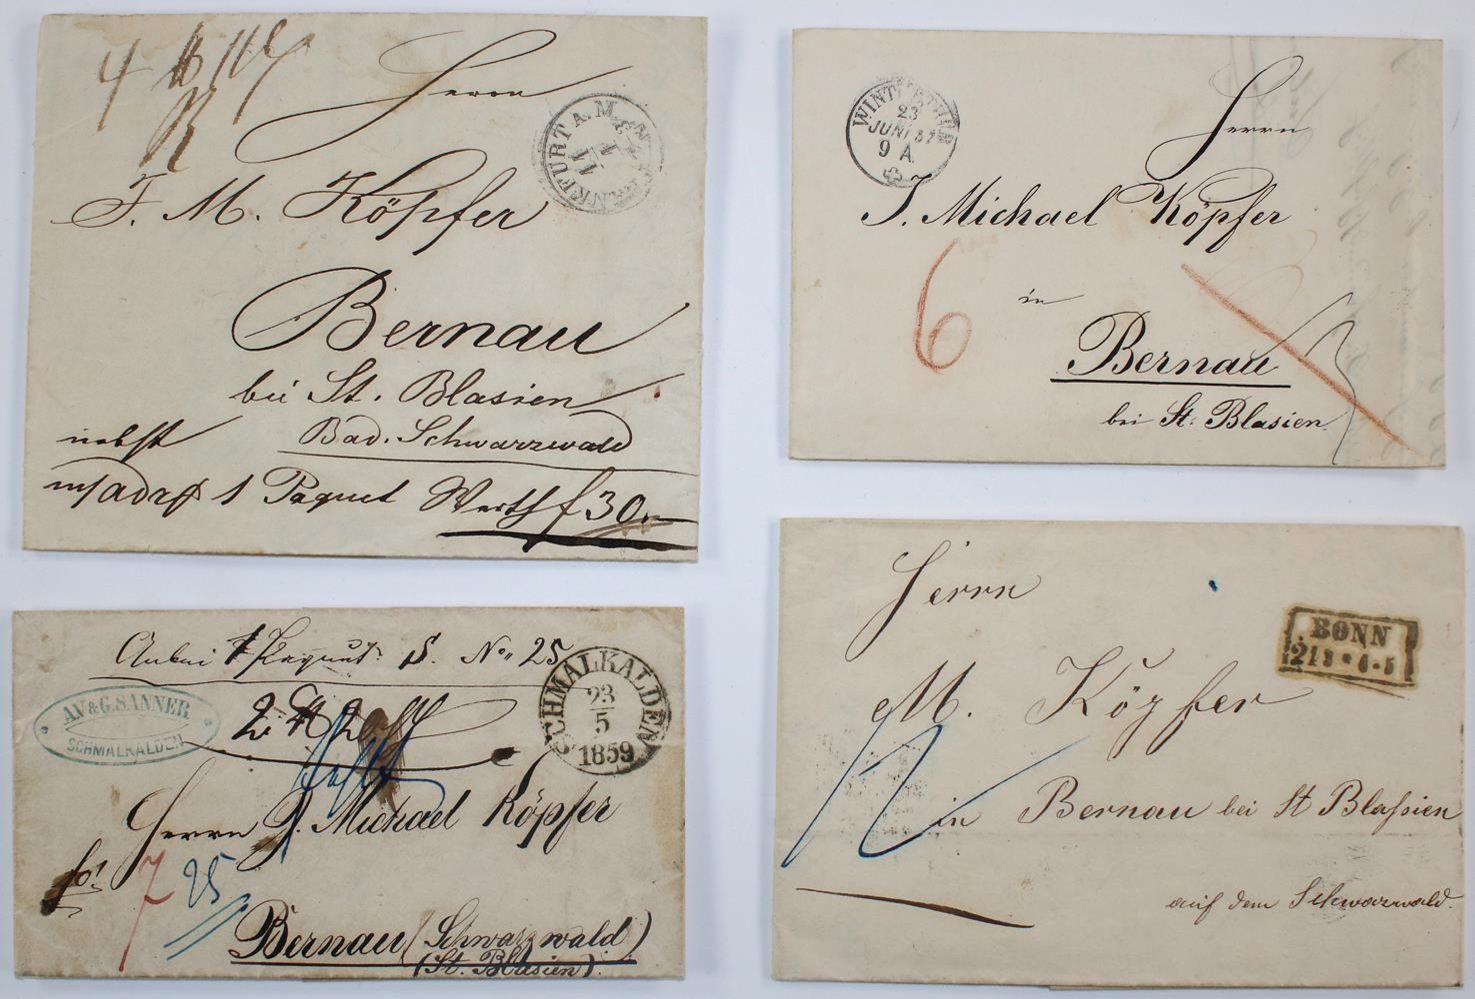 Herrn
FRANKFURT A. M.
J. M. Köpfer
Bernau
bei St. Blasien
Bad. Schwarzwald
nebst
1 Paquet Werth f 30
WINTERTHUR
23
JUNI 57
9 A
Herrn
J. Michael Köpfer
6
in
Bernau
bei St. Blasien
Anbei 1 Paquet S. No 25
A.V & G. SANNER
SCHMALKALDEN
SCHMALKALDEN
23
5
1859
Herrn J. Michael Köpfer
7 25
Bernau (Schwarzwald)
(St. Blasien).
Herrn
BONN
M. Köpfer
in Bernau bei St Blaſsien
auf dem Schwarzwald.